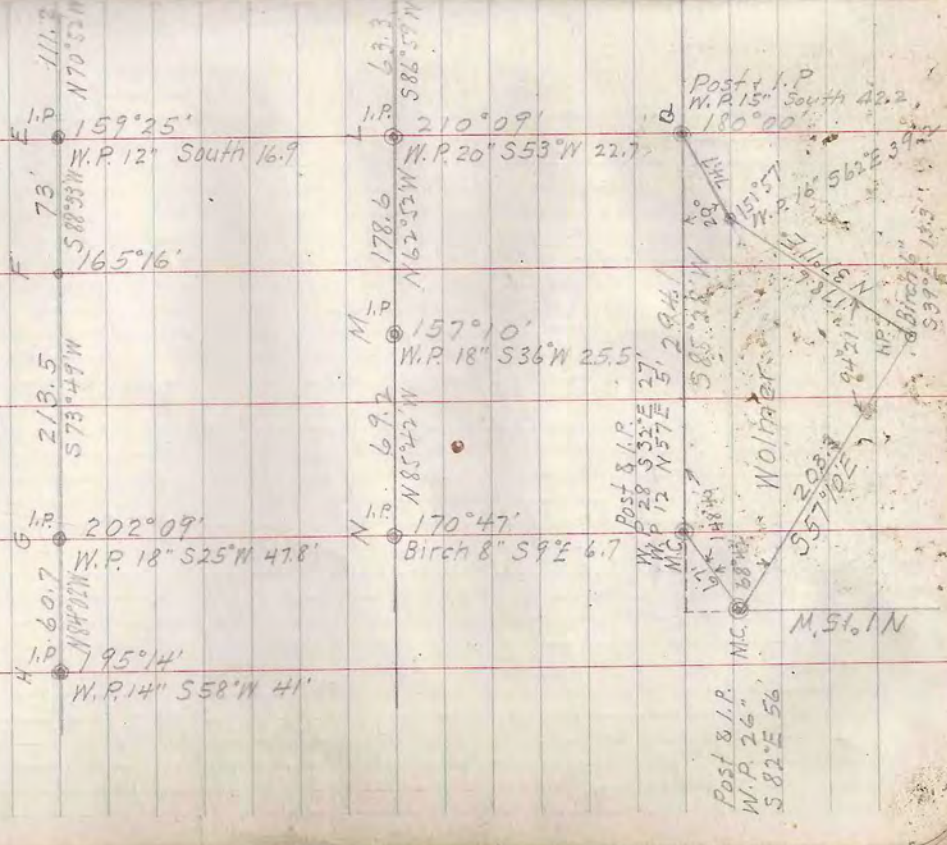 111.3
N70°52'W
E
I.P. 159°25'
W.P. 12" South 16.9
73'
S88°33'W
F
165°16'
213.5
S73°49'W
G
I.P. 202°09'
W.P. 18" S25°W 47.8'
60.7
N84°02'W
H
I.P. 195°14'
W.P. 14" S58°W 41'
63.3
S86°59'W
L
I.P. 210°09'
W.P. 20" S53°W 22.7
178.6
N62°52'W
M
I.P. 157°10'
W.P. 18" S36°W 25.5
69.2
N85°42'W
N
I.P. 170°47'
Birch 8" S9°E 6.7
Post & I.P.
W.P. 15" South 42.2
180°00'
74.1
20°
151°57'
W.P. 16" S62°E
178.6
94°21'
Birch 6"
S39°E 13.3'
294.1
S85°28'W
Wolmer
Post & I.P.
W.P. 28 S32°E 27'
W.P. 12 N57E 5'
M.C.
148°41'
67'
68°
203.3
S57°10'E
M.C.
M. St. 1 N
Post & I.P.
W.P. 26"
S82°E 56'